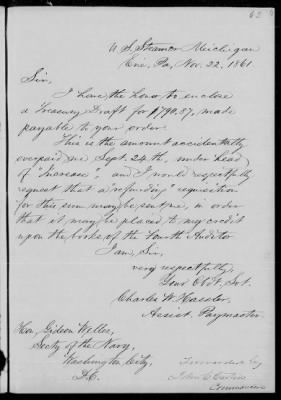 U. S. Steamer Michigan
Erie, Pa, Nov. 22, 1861.
Sir,
I have the honor to enclose
a Treasury Draft for $790.57, made
payable to your order.
This is the amount accidentally
overpaid me Sept. 24th, under head
of "Increase", and I would respectfully
request that a "refunding" requisition
for this sum may be sent me, in order
that it may be placed to my credit
upon the books of the Fourth Auditor
I am, Sir,
very respectfully,
Your Obt. Svt.
Charles W. Hassler,
Assist. Paymaster.
Hon. Gideon Welles,
Secty of the Navy,
Washington City,
D.C.
Forwarded by
John C. Carter
Commander